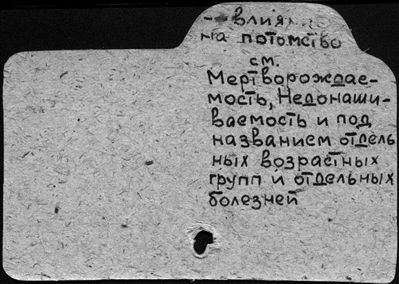 - влияние
на потомство
см.
Мертворождае-
мость, Недонаши-
ваемость и под
названием отдель
ных возрастных
групп и отдельных
болезней